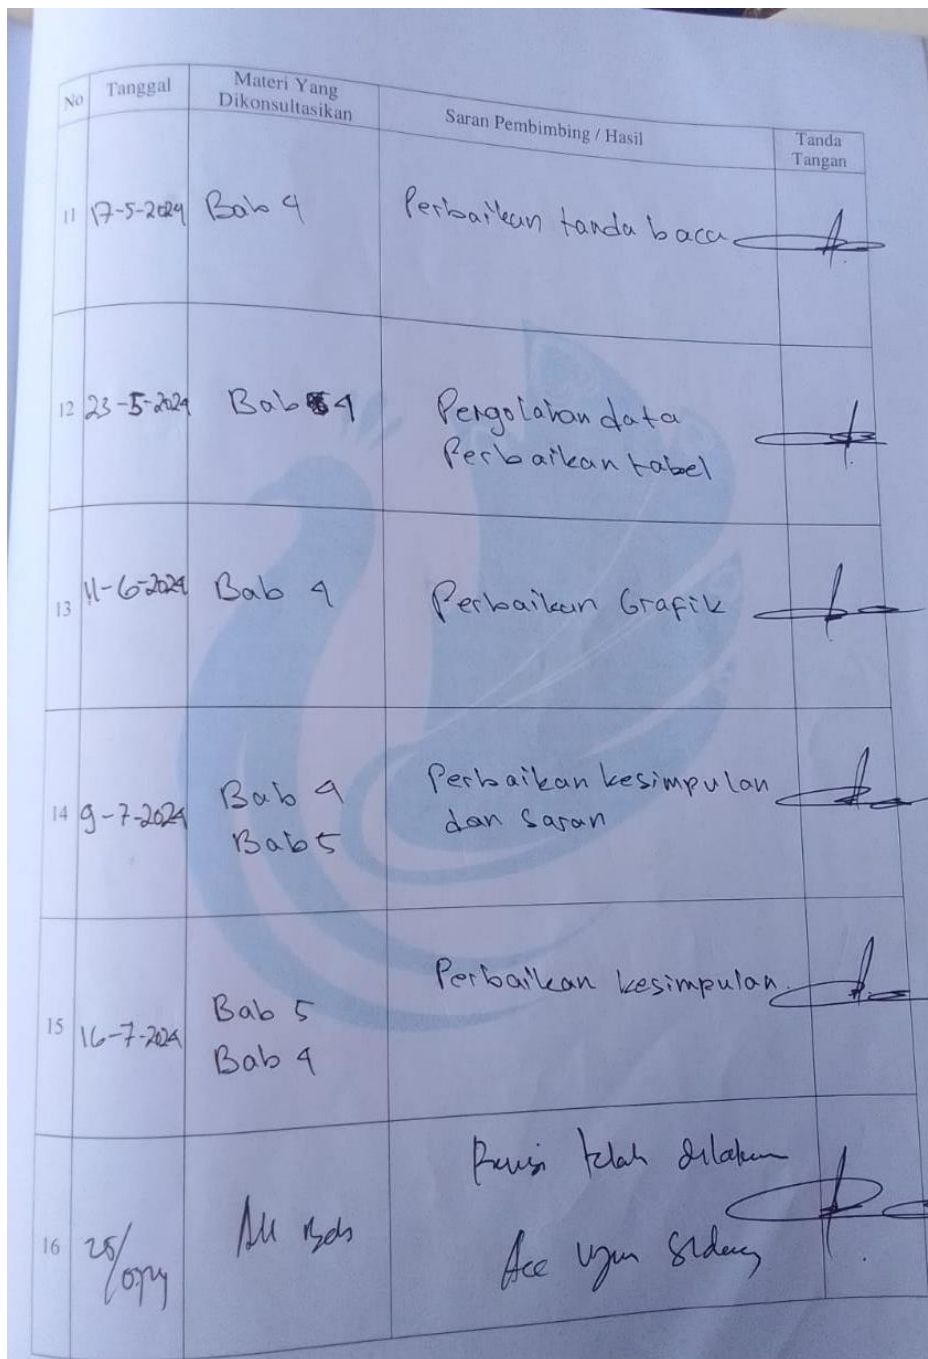 No Tanggal Materi Yang Dikonsultasikan Saran Pembimbing / Hasil Tanda Tangan
11 17-5-2024 Bab 4 Perbaikan tanda baca
12 23-5-2024 Bab 4 Pergolahan data
Perbaikan tabel
13 11-6-2024 Bab 4 Perbaikan Grafik
14 9-7-2024 Bab 4 Perbaikan kesimpulan
Bab 5 dan Saran
15 16-7-2024 Bab 5 Perbaikan kesimpulan.
Bab 4
16 All Bab Revisi telah
Acc Sidang